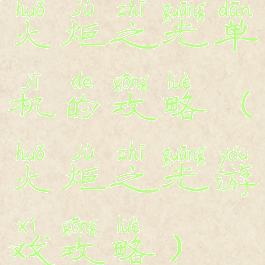 huǒ jù zhī guāng dān
火炬之光单
jī de gōng lüè
机的攻略（
huǒ jù zhī guāng yóu
火炬之光游
xì gōng lüè
戏攻略）